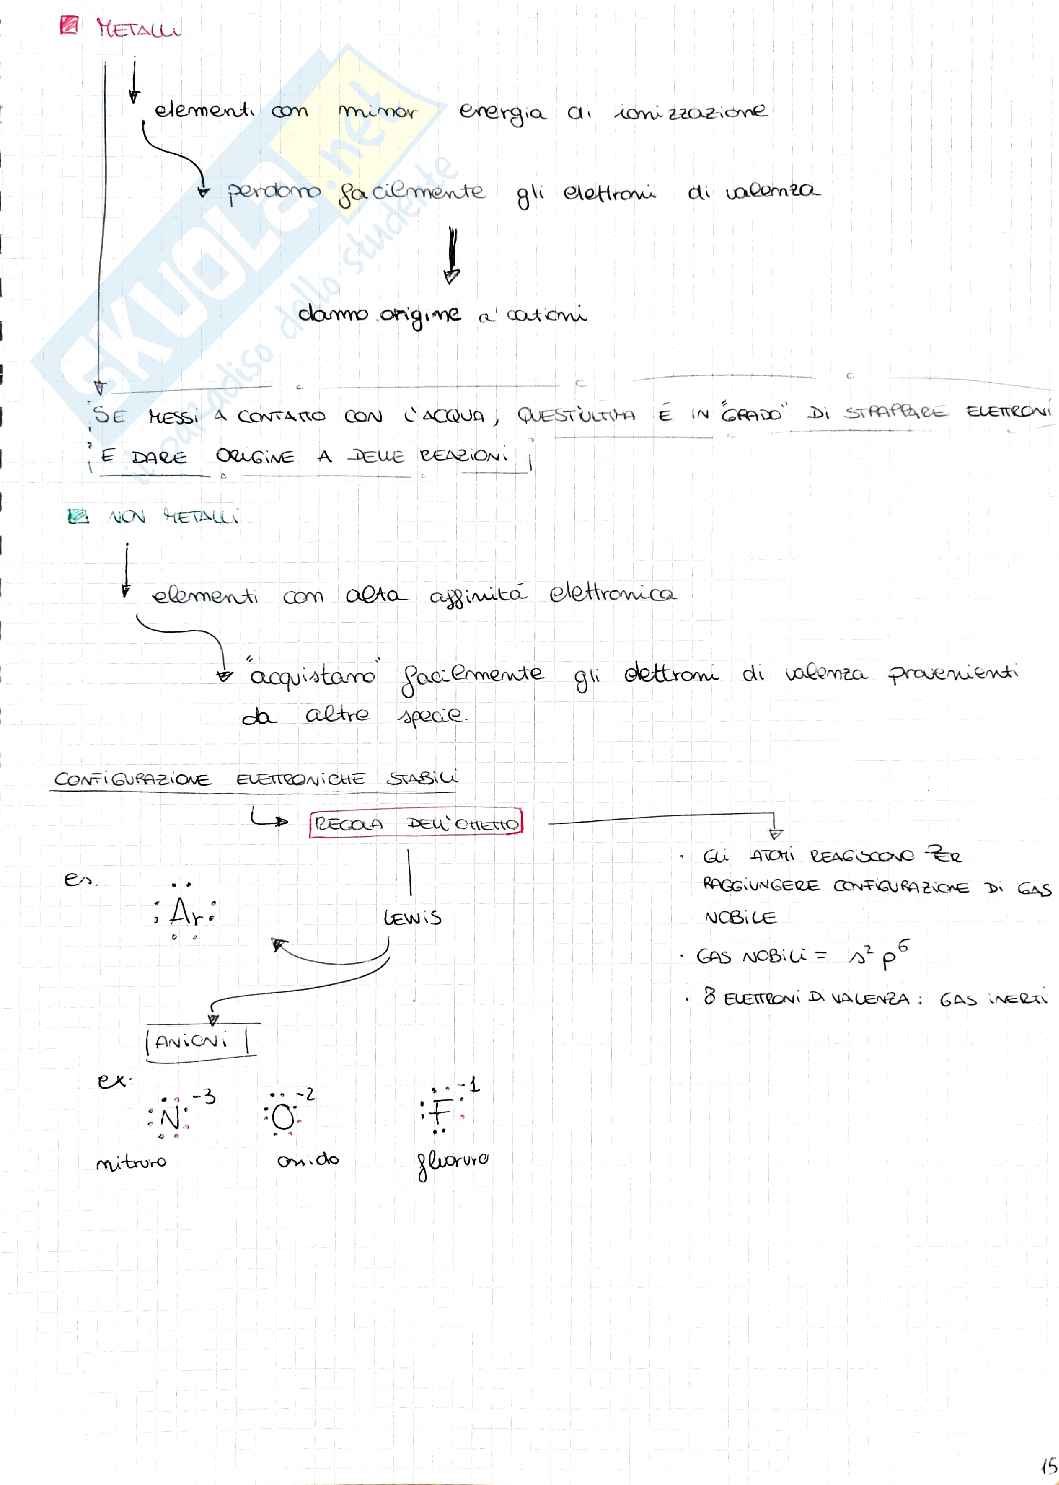 METALLI
elementi con minor energia di ionizzazione
perdono facilmente gli elettroni di valenza
danno origine a cationi
SE MESSI A CONTATTO CON L'ACQUA, QUEST'ULTIMA É IN "GRADO" DI STRAPPARE ELETTRONI
E DARE ORIGINE A DELLE REAZIONI
NON METALLI
elementi con alta affinitá elettronica
"acquistano" facilmente gli elettroni di valenza provenienti
da altre specie.
CONFIGURAZIONE ELETTRONICHE STABILI
REGOLA DELL'OTTETTO
· GLI ATOMI REAGISCONO PER
RAGGIUNGERE CONFIGURAZIONE DI GAS
NOBILE
es.
Ar
LEWIS
· GAS NOBILI = s² p⁶
· 8 ELETTRONI DI VALENZA : GAS INERTI
ANIONI
ex.
N -3 O -2 F -1
nitruro ossido fluoruro
15
SKUOLA.net
il paradiso dello studente